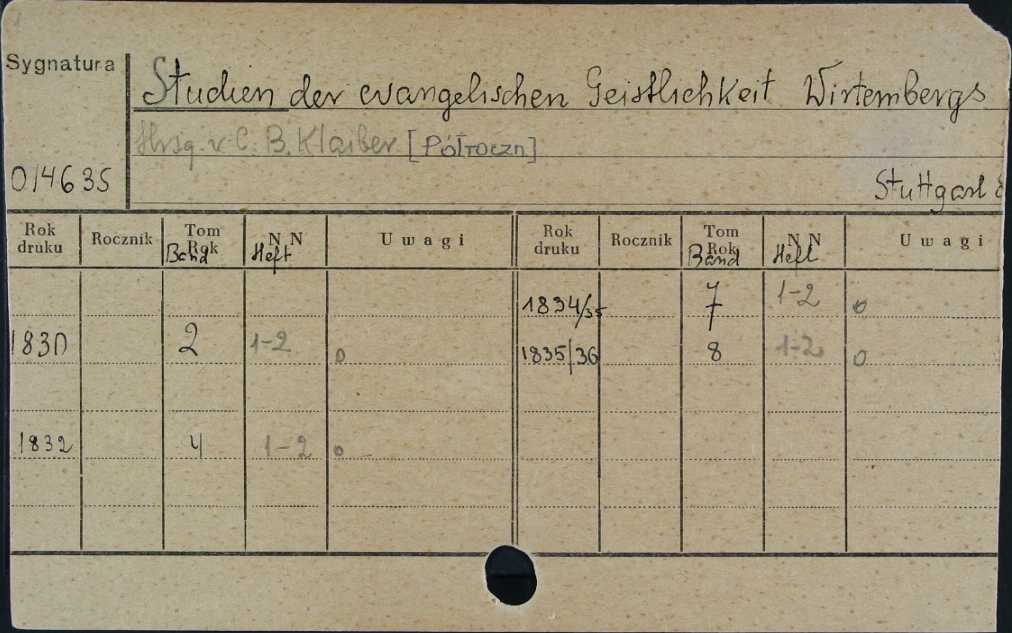 Sygnatura
Studien der evangelischen Geistlichkeit Wirtembergs
Hrsg. v. C. B. Klaiber [Półroczn]
014635
Stuttgart
Rok druku Rocznik Tom Rok Band NN Heft Uwagi Rok druku Rocznik Tom Rok Band NN Heft Uwagi
1834/35 7 1-2 o
1830 2 1-2 o 1835/36 8 1-2 o
1832 4 1-2 o